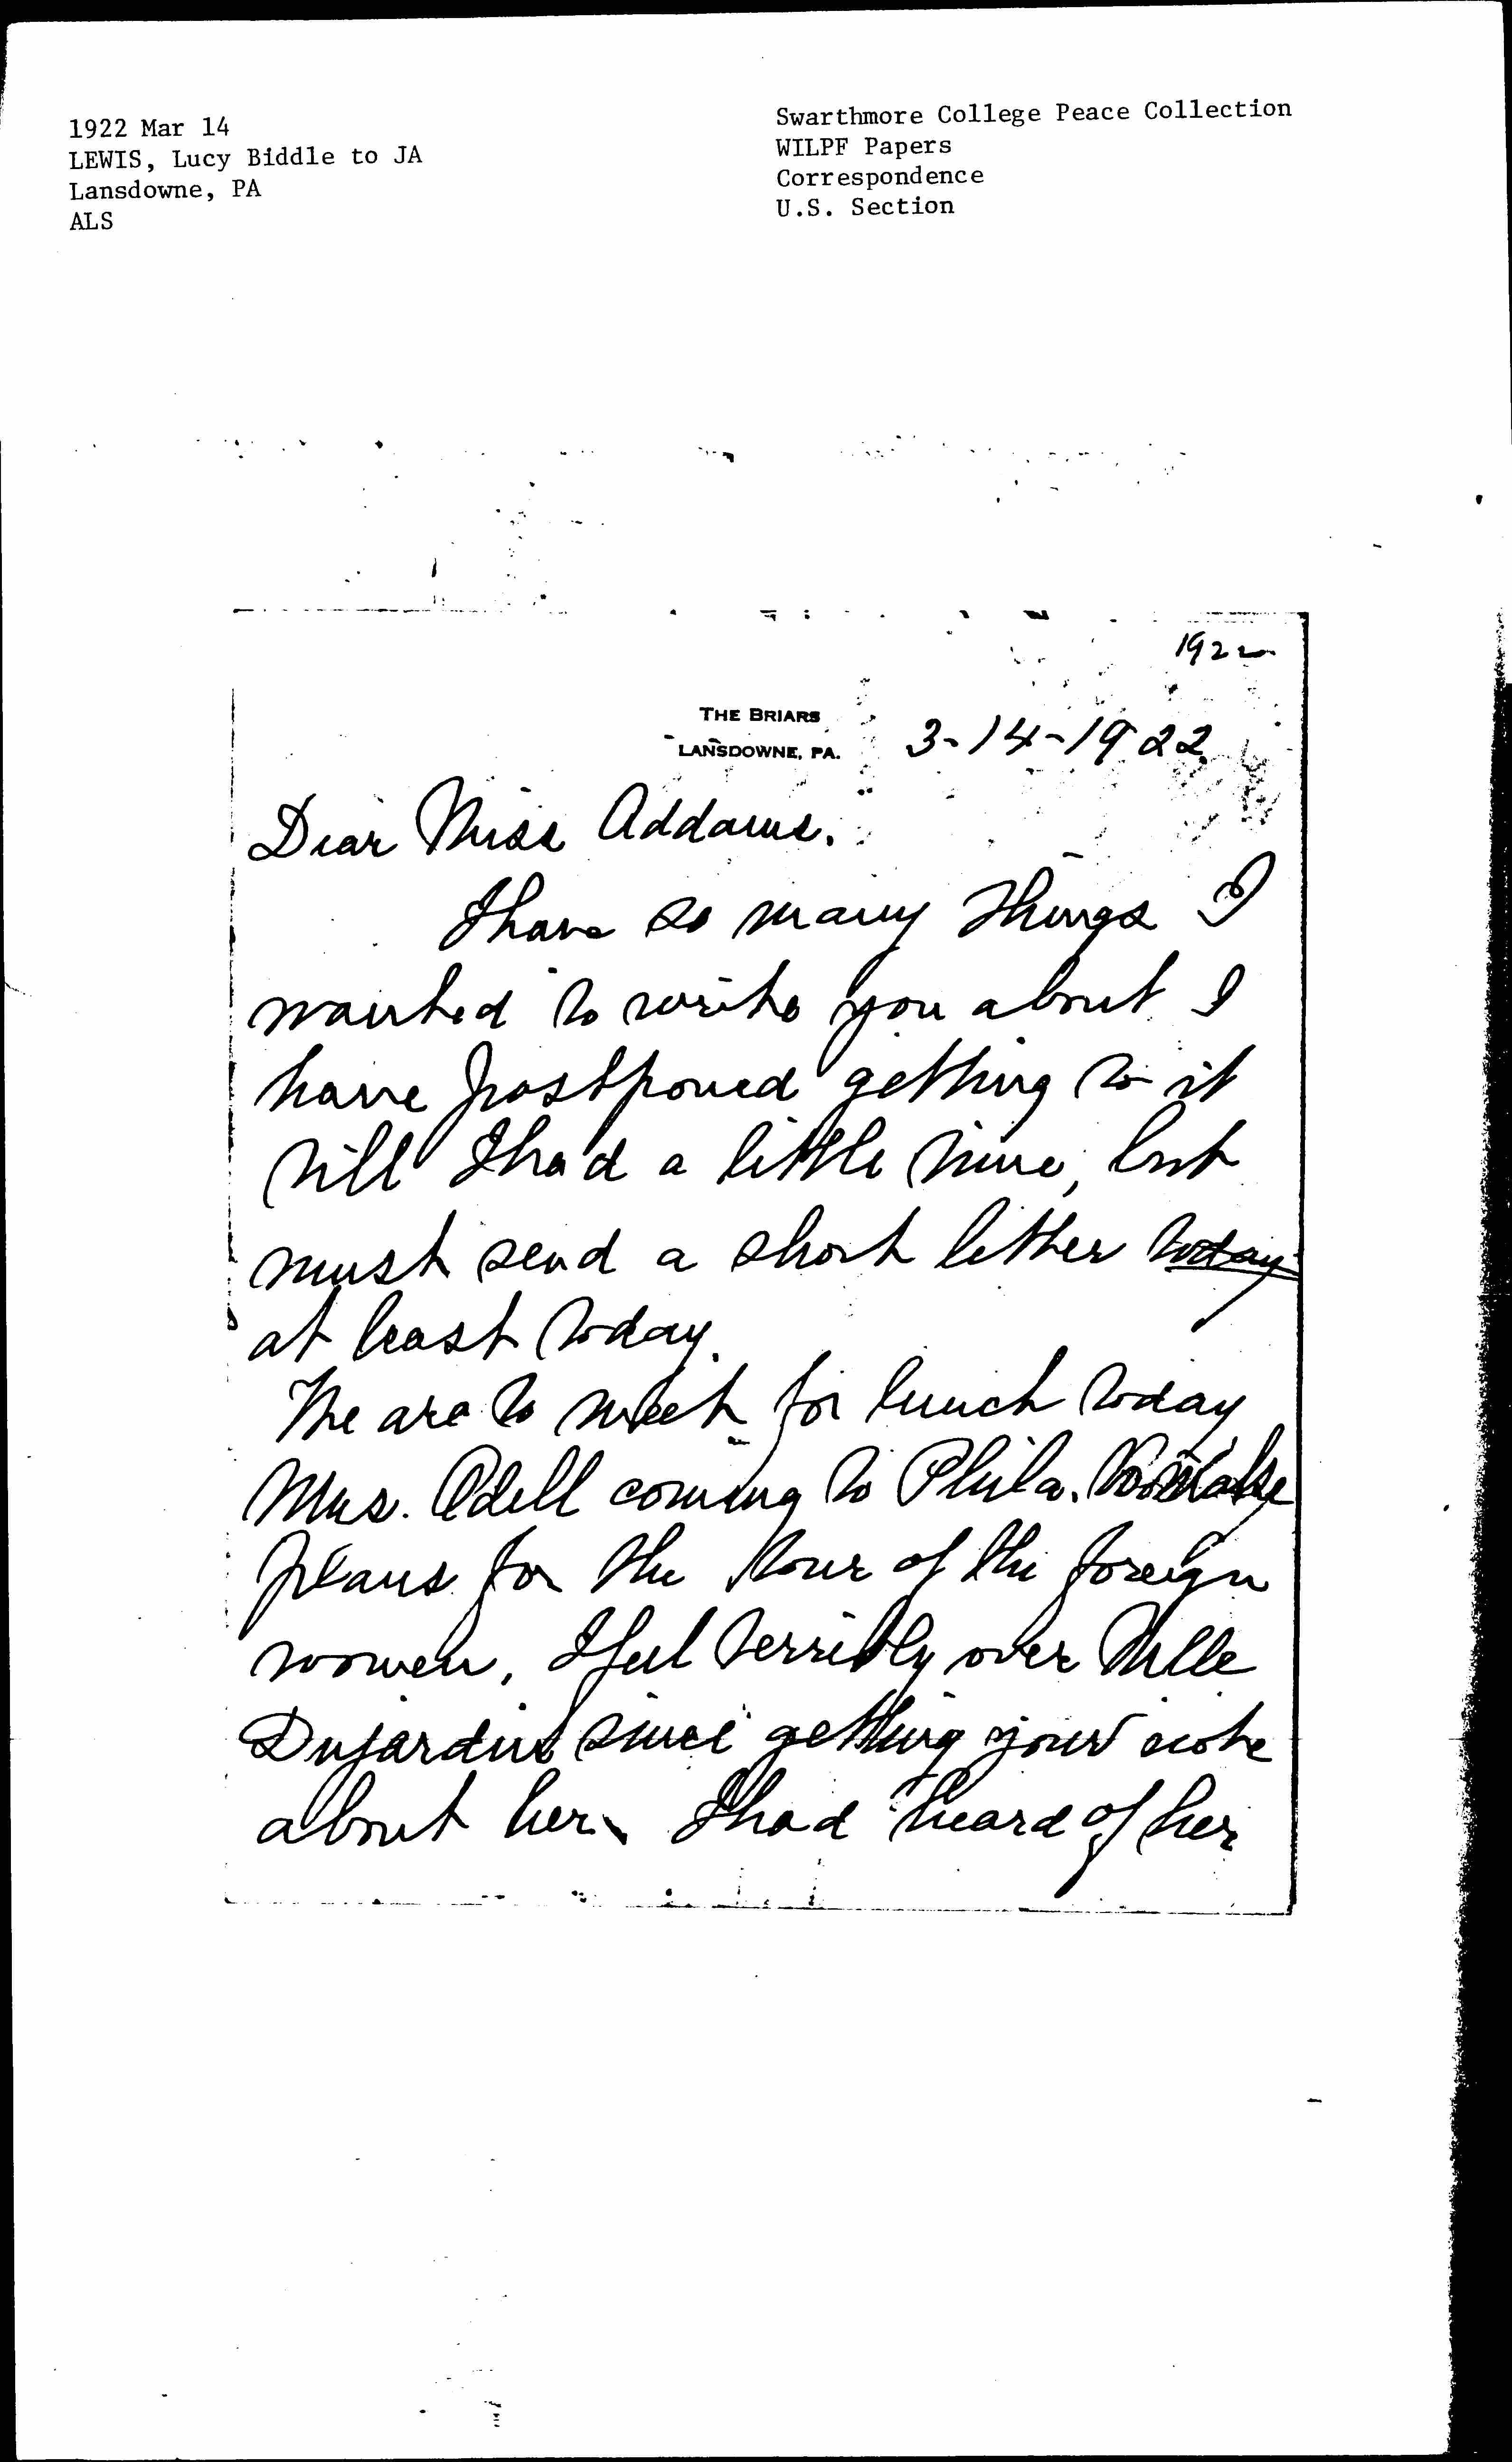 1922 Mar 14
LEWIS, Lucy Biddle to JA
Lansdowne, PA
ALS
Swarthmore College Peace Collection
WILPF Papers
Correspondence
U.S. Section
1922
THE BRIARS
LANSDOWNE, PA.
3-14-1922
Dear Miss Addams.
I have so many things I
wanted to write you about I
have postponed getting to it
till I had a little time, but
must send a short letter today
at least today.
We are to meet for lunch today
Mrs. Odell coming to Phila. to make
plans for the tour of the foreign
women, I feel terribly over Mlle
Dujardin since getting your note
about her. I had heard of her